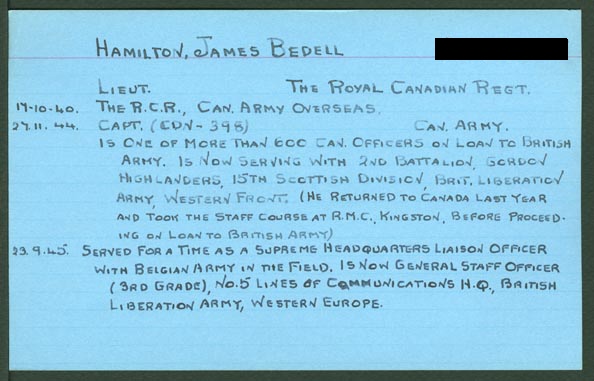 HAMILTON, JAMES BEDELL
LIEUT. THE ROYAL CANADIAN REGT.
17-10-40. THE R.C.R., CAN. ARMY OVERSEAS.
27.11.44. CAPT. (CDN-398) CAN. ARMY.
IS ONE OF MORE THAN 600 CAN. OFFICERS ON LOAN TO BRITISH
ARMY. IS NOW SERVING WITH 2ND BATTALION, GORDON
HIGHLANDERS, 15TH SCOTTISH DIVISION, BRIT. LIBERATION
ARMY, WESTERN FRONT. (HE RETURNED TO CANADA LAST YEAR
AND TOOK THE STAFF COURSE AT R.M.C., KINGSTON, BEFORE PROCEED-
ING ON LOAN TO BRITISH ARMY)
23.9.45. SERVED FOR A TIME AS A SUPREME HEADQUARTERS LIAISON OFFICER
WITH BELGIAN ARMY IN THE FIELD. IS NOW GENERAL STAFF OFFICER
(3RD GRADE), NO.5 LINES OF COMMUNICATIONS H.Q., BRITISH
LIBERATION ARMY, WESTERN EUROPE.